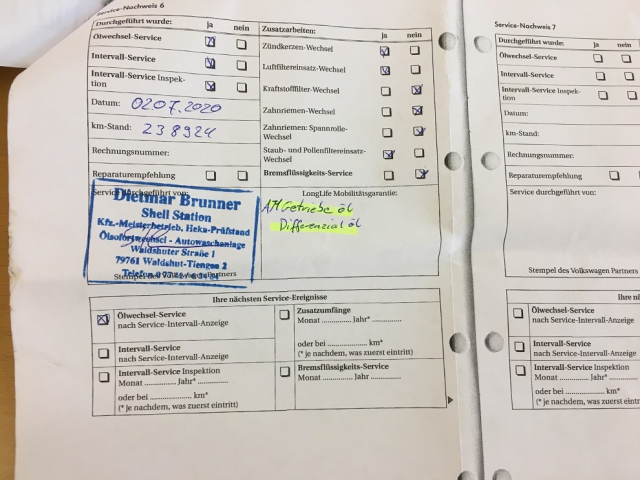 Service-Nachweis 6
Durchgeführt wurde: ja nein
Ölwechsel-Service
Intervall-Service
Intervall-Service Inspek-
tion
Datum: 02.07.2020
km-Stand: 238924
Rechnungsnummer:
Reparaturempfehlung
Service durchgeführt von:
Dietmar Brunner
Shell Station
Kfz.-Meisterbetrieb, Heka-Prüfstand
Ölsofortwechsel - Autowaschanlage
Waldshuter Straße 1
79761 Waldshut-Tiengen 2
Stempel des Volkswagen Partners
Zusatzarbeiten: ja nein
Zündkerzen-Wechsel
Luftfiltereinsatz-Wechsel
Kraftstofffilter-Wechsel
Zahnriemen-Wechsel
Zahnriemen: Spannrolle-
Wechsel
Staub- und Pollenfiltereinsatz-
Wechsel
Bremsflüssigkeits-Service
LongLife Mobilitätsgarantie:
Getriebe öl
Differenzial öl
Ihre nächsten Service-Ereignisse
Ölwechsel-Service
nach Service-Intervall-Anzeige
Intervall-Service
nach Service-Intervall-Anzeige
Intervall-Service Inspektion
Monat .............. Jahr* ..............
oder bei .................... km*
(* je nachdem, was zuerst eintritt)
Zusatzumfänge
Monat .............. Jahr* ..............
oder bei .................... km*
(* je nachdem, was zuerst eintritt)
Bremsflüssigkeits-Service
Monat .............. Jahr ..............
Service-Nachweis 7
Durchgeführt wurde: ja nein
Ölwechsel-Service
Intervall-Service
Intervall-Service Inspek-
tion
Datum:
km-Stand:
Rechnungsnummer:
Reparaturempfehlung
Service durchgeführt von:
Stempel des Volkswagen Partners
Ihre
Ölwechsel-Service
nach Service-Intervall-Anzeige
Intervall-Service
nach Service-Intervall-Anzeige
Intervall-Service Inspektion
Monat .............. Jahr* ..............
oder bei .................... km*
(* je nachdem, was zuerst eintritt)